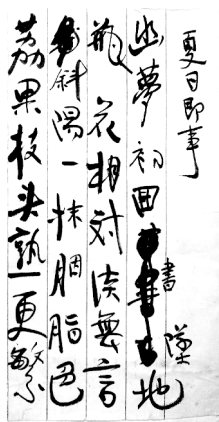 夏日即事
幽夢初回書墜地
瓶花相对淡無言
斜陽一抹胭脂色
荔果枝头熟更繁